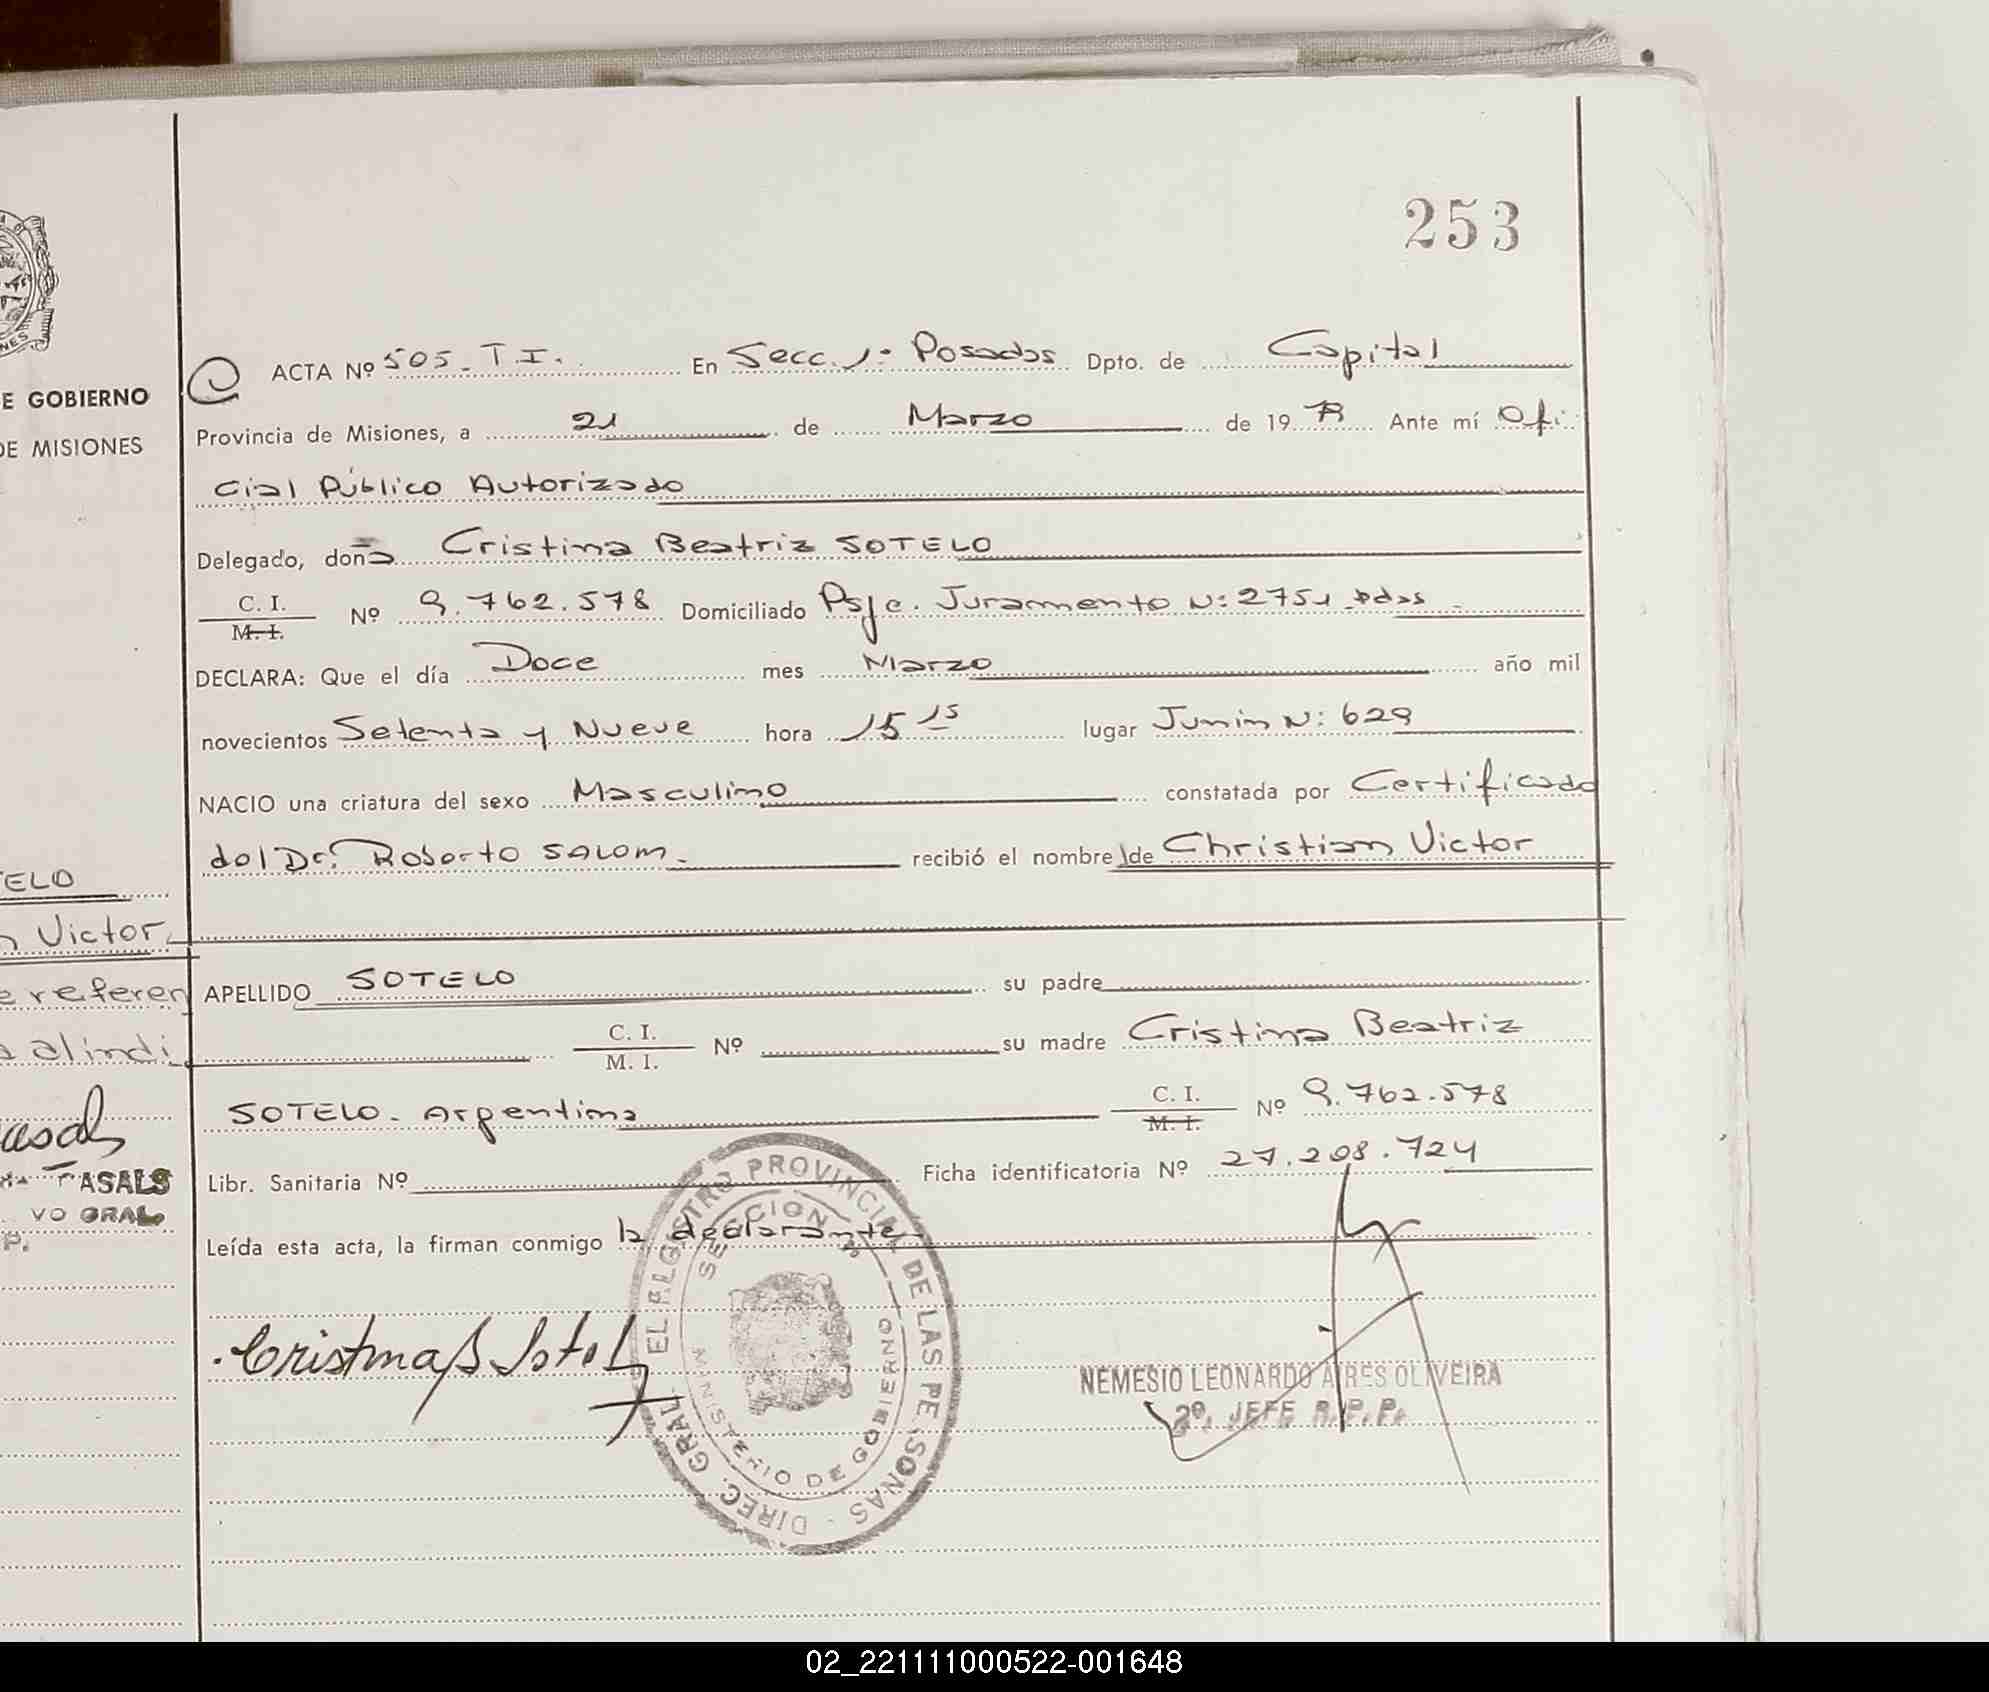 253
E GOBIERNO
DE MISIONES
ACTA Nº 505_ T.I. En Secc. 1: Posadas Dpto. de Capital
Provincia de Misiones, a 21 de Marzo de 19 79 Ante mí Ofi
cial Público Autorizado
Delegado, doña Cristina Beatriz SOTELO
C. I. / M. I. Nº 9.762.578 Domiciliado Psje. Juramento N: 2751 Pdas
DECLARA: Que el día Doce mes Marzo año mil
novecientos Setenta y Nueve hora 15 15 lugar Junin N: 629
NACIO una criatura del sexo Masculino constatada por Certificado
del Dr. Roberto SALOM. recibió el nombre de Christian Victor
ELO
Victor
APELLIDO SOTELO su padre
e referen
C. I. / M. I. Nº su madre Cristina Beatriz
al indi
SOTELO. Argentina C. I. / M. I. Nº 9.762.578
Libr. Sanitaria Nº Ficha identificatoria Nº 27.208.724
ASALS
VO GRAL
P.
Leída esta acta, la firman conmigo la declarante
Cristina B Sotelo
DIREC. GRAL. EL REGISTRO PROVINCIAL DE LAS PERSONAS
SECCION
MINISTERIO DE GOBIERNO
NEMESIO LEONARDO AIRES OLIVEIRA
2º. JEFE R.P.P.
02_221111000522-001648